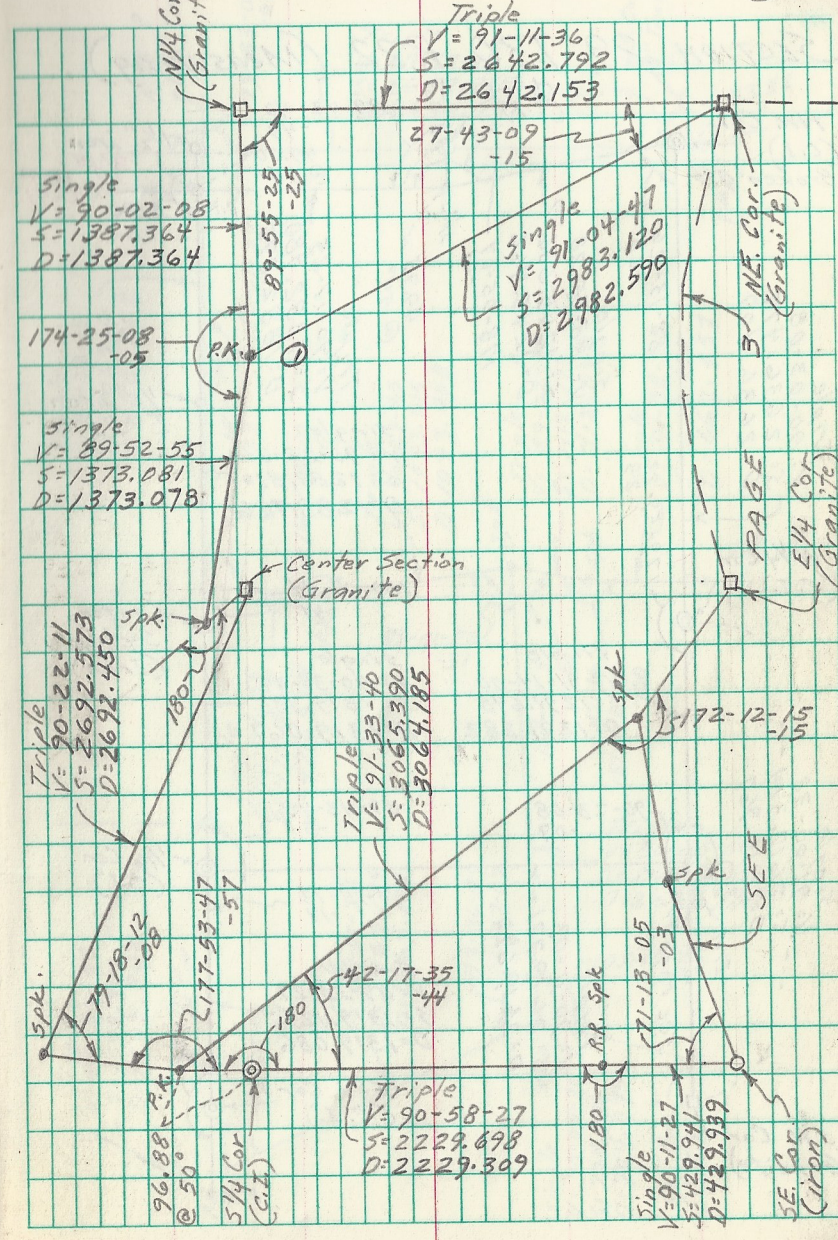 N1/4 Cor
(Granite
Triple
V = 91-11-36
S = 2642.792
D = 2642.153
27-43-09
-15
Single
V = 90-02-08
S = 1387.364
D = 1387.364
89-55-25
-25
Single
V = 91-04-47
S = 2983.120
D = 2982.590
NE. Cor.
(Granite)
174-25-08
-05
P.K.
1
Single
V = 89-52-55
S = 1373.081
D = 1373.078
Center Section
(Granite)
Spk.
180
SEE PAGE 3
E1/4 Cor
(Granite)
Triple
V = 90-22-11
S = 2692.573
D = 2692.450
Triple
V = 91-33-40
S = 3065.390
D = 3064.185
Spk
172-12-15
-15
Spk
79-18-12
-08
177-53-47
-57
42-17-35
-44
71-13-05
-03
Spk.
180
R.R. Spk
P.K.
96.88
@ 50°
S1/4 Cor
(C.I.)
Triple
V = 90-58-27
S = 2229.698
D = 2229.309
180
Single
V = 90-11-27
S = 429.941
D = 429.939
SE. Cor.
(iron)